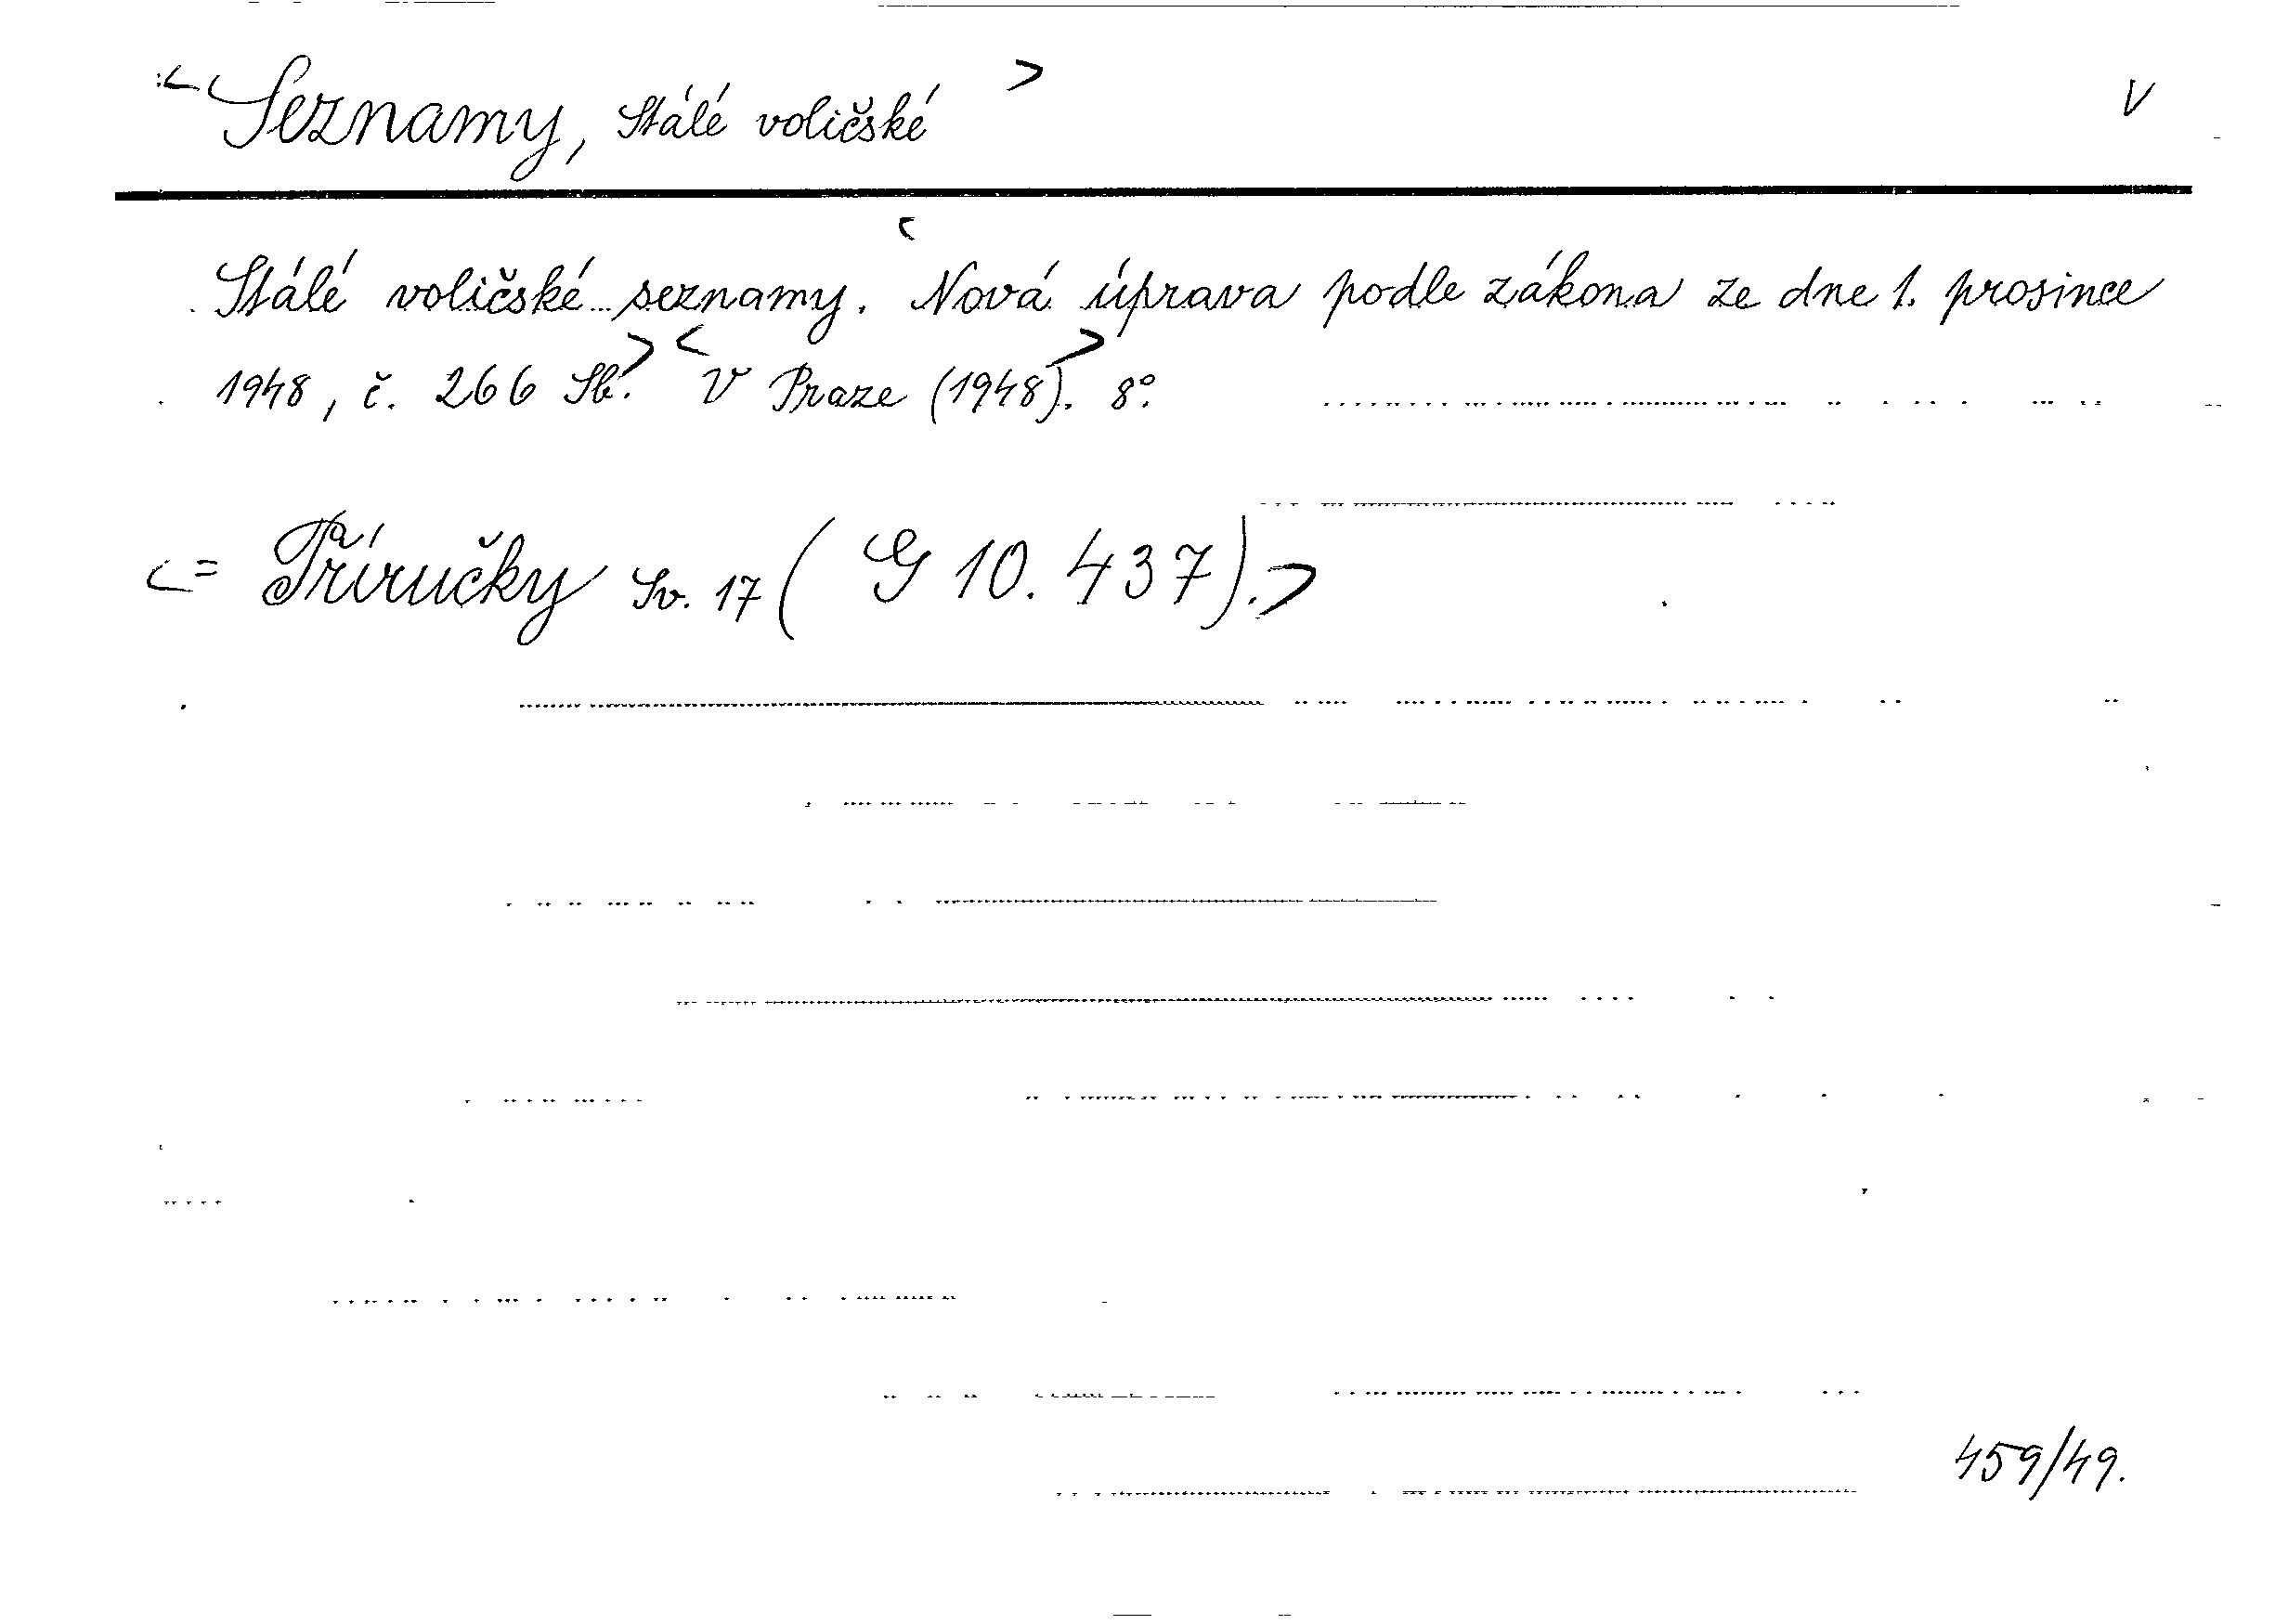 <Seznamy, Stálé voličské> V
Stálé voličské seznamy. <Nová úprava podle zákona ze dne 1. prosince
1948, č. 266 Sb.> <V Praze (1948).> 8°.
<= Příručky Sv. 17 (G 10.437).>
459/49.